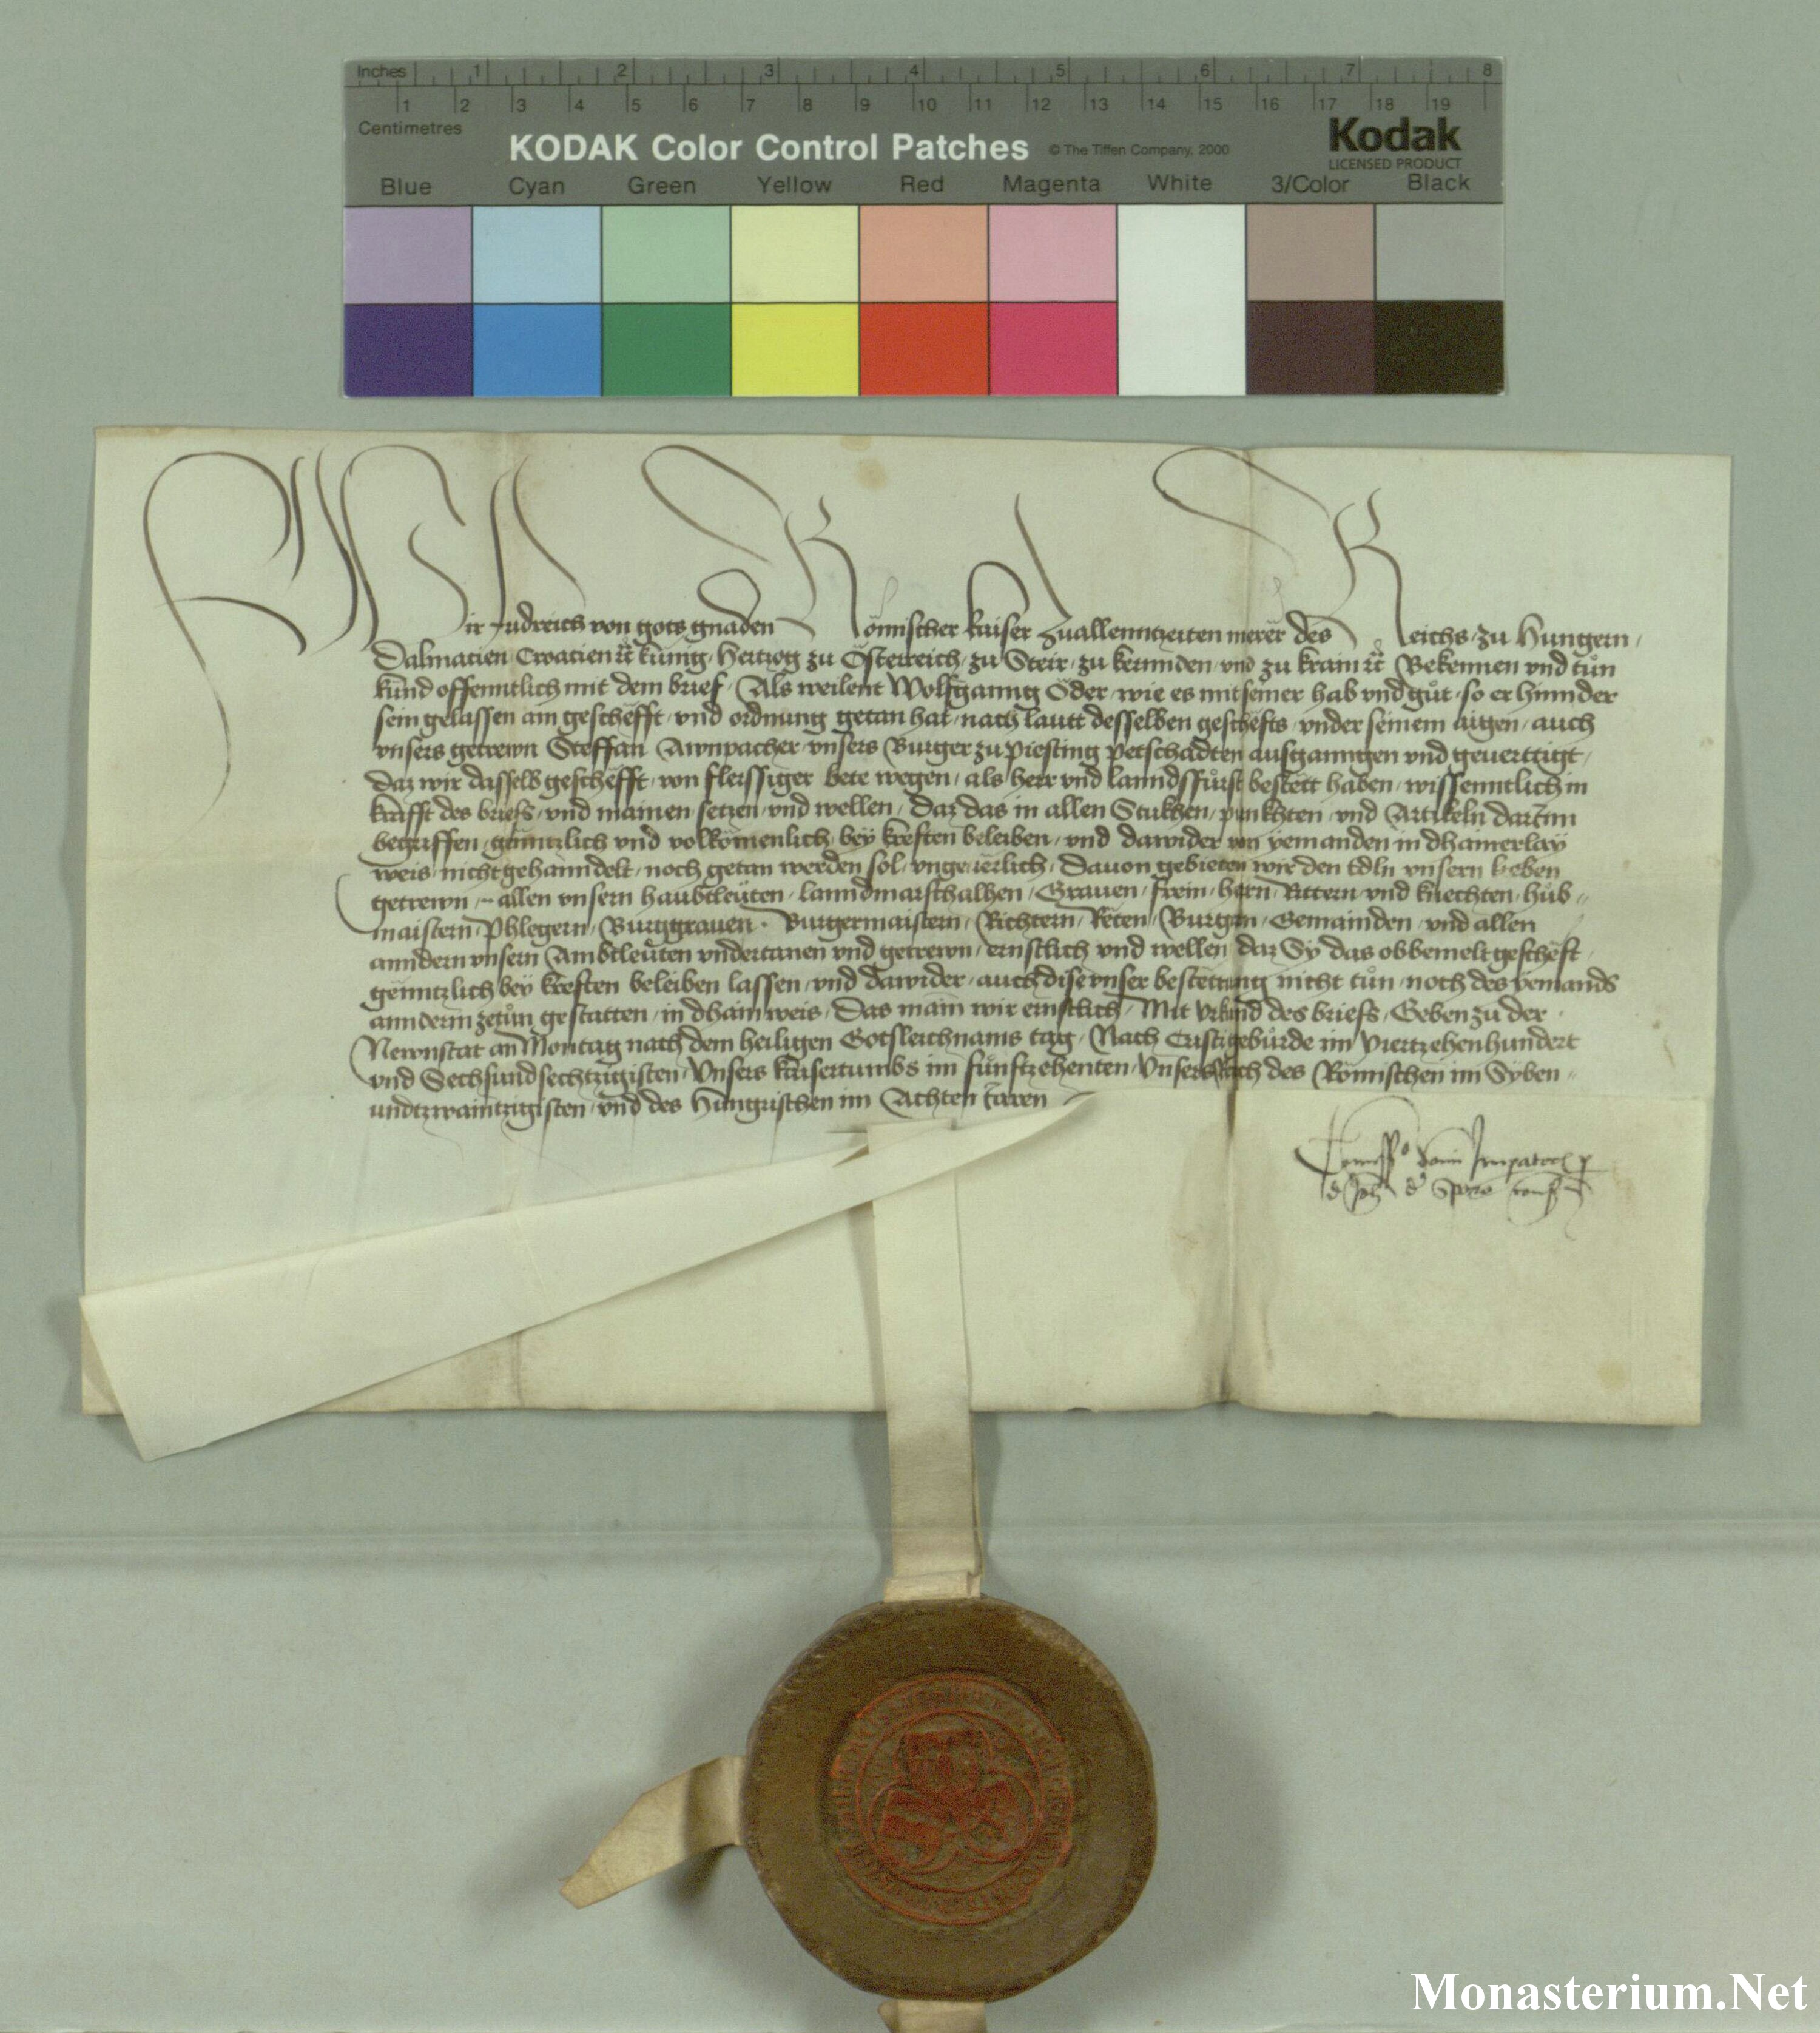 Inches 1 2 3 4 5 6 7 8
1 2 3 4 5 6 7 8 9 10 11 12 13 14 15 16 17 18 19
Centimetres
KODAK Color Control Patches © The Tiffen Company, 2000 Kodak
LICENSED PRODUCT
Blue Cyan Green Yellow Red Magenta White 3/Color Black
Wir Fridreich von gots gnaden Römischer kaiser zuallenntzeiten merer des Reichs zu Hungern
Dalmatien Croatien ꝛc kunig Hertzog zu Österreich zu Steir zu kernnden vnd zu krain ꝛc Bekennen vnd tůn
kund offenntlich mit dem brief Als weilent Wolfganng Öder wie es mit seiner hab vnd gůt so er hinnder
sein gelassen ain geschefft vnd ordnung getan hat nach lautt desselben geschefts vnder seinem aigen auch
vnsers getrewn Steffan vnsers Burger zu Piesting petschadten ausganngen vnd geuerttigt
daz wir dasselb geschefft von fleissiger bete wegen als herr vnd lanndsfůrst bestett haben wissenntlich in
krafft des briefs vnd mainen setzen vnd wellen daz das in allen Stukhen punkhten vnd Artikeln darinn
begriffen genntzlich vnd volkomenlich bey kreften beleiben vnd dawider von yemanden in dhainerlay
weis nicht gehanndelt noch getan werden sol vngeuerlich Dauon gebieten wir den Edln vnsern lieben
getrewn allen vnsern haubtleuten lanndmarschalhen Grauen frein hern Rittern vnd knechten hůb
maistern Phlegern Burggrauen Burgermaistern Richtern Reten Burgern Gemainden vnd allen
anndern vnsern Ambtleuten vndertanen vnd getrewn ernstlich vnd wellen daz Sy das obbemelt gescheft
genntzlich bey kreften beleiben lassen vnd dawider auch dise vnser bestettung nicht tůn noch des yemands
anndern zetůn gestatten in dhain weis Das main wir ernstlich Mit vrkund des briefs Geben zu der
Newnstat an Montag nach dem heiligen Gotsleichnams tag Nach Cristi gebůrde im viertzehenhundert
vnd Sechsundsechtzigisten Vnsers kaisertumbs im fůnftzehenten Vnsers Reich des Römischen im Syben
undtzwaintzigisten vnd des Hungrischen im Achten Jaren
Monasterium.Net